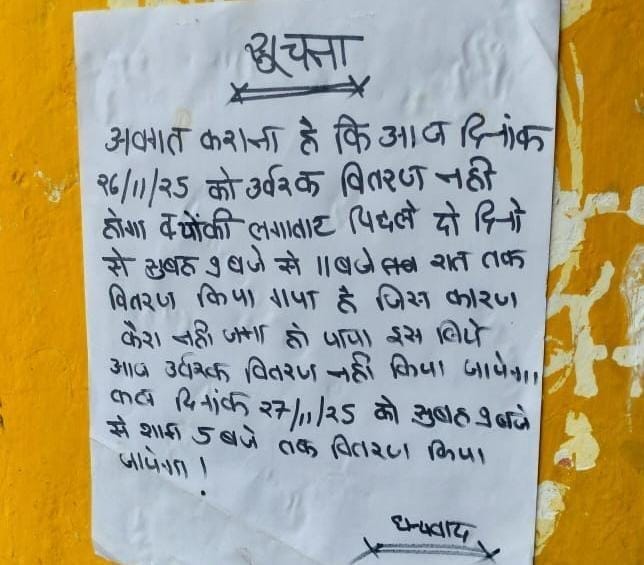 सूचना
अवगत कराना है कि आज दिनांक
26/11/25 को उर्वरक वितरण नही
होगा क्योंकी लगातार पिछले दो दिनो
से सुबह 9 बजे से 11 बजे रात तक
वितरण किया गया है जिस कारण
कैश नही जमा हो पाया इस लिये
आज उर्वरक वितरण नही किया जायेगा।
कल दिनांक 27/11/25 को सुबह 9 बजे
से शाम 5 बजे तक वितरण किया
जायेगा !
धन्यवाद